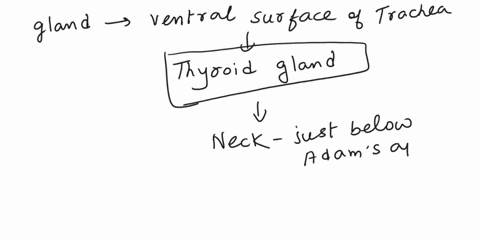 gland → ventral surface of Trachea
Thyroid gland
Neck - just below
Adam's ap